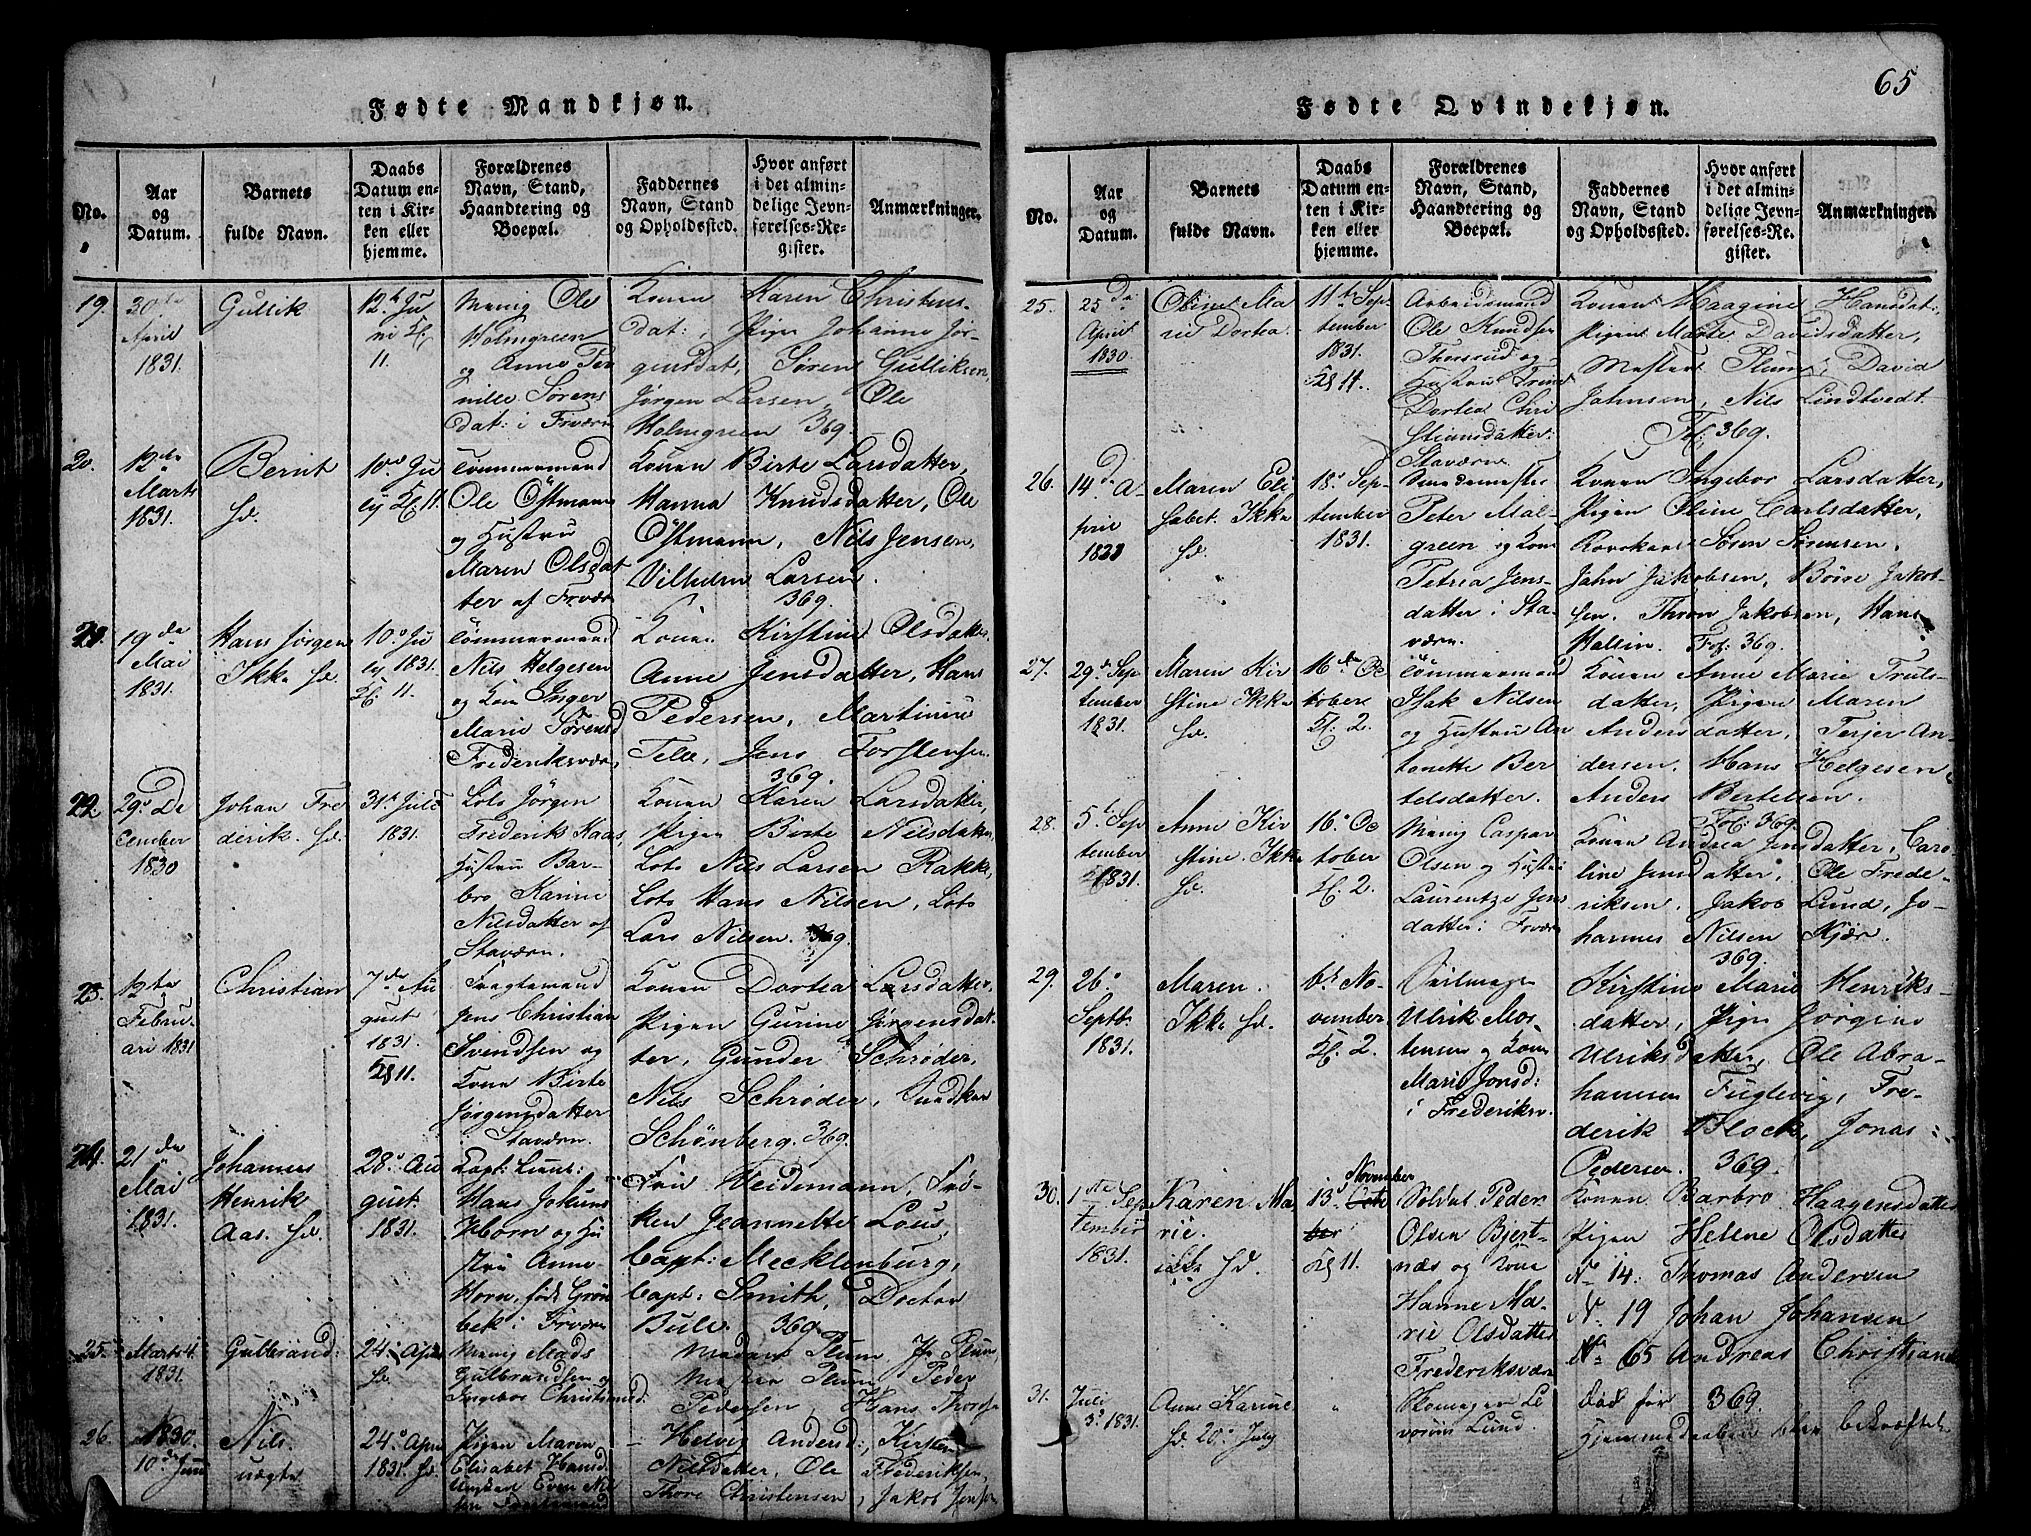 65
Fødte Mandkjøn.
No.
Aar og Datum.
Barnets fulde Navn.
Daabs Datum enten i Kirken eller hjemme.
Forældrenes Navn, Stand, Haandtering og Boepæl.
Faddernes Navn, Stand og Opholdssted.
Hvor anført i det almindelige Jevnførelses-Register.
Anmærkninger.
19.
30te
April
1831.
Gullik
12te Ju
ni Kl.
11.
Ole
Holmgreen
og Anne Per
nille Sørens
dat: i Frværn
Konen Karen Christens
dat:, Pigen Johanne Jør
gensdat, Søren Gulliksen,
Jørgen Larsen, Ole
Holmgreen 369.
20.
12te
Marts
1831.
Bernt
hd.
10de Ju
ly Kl. 11.
Tømmermand
Ole Östmann
og Hustru
Maren Olsdat
ter af Frværn
Konen Birte Larsdatter,
Hanna Knudsdatter, Ole
Östmann, Nils Jensen,
Vilhelm Larsen.
369.
21.
19de
Mai
1831.
Hans Jørgen
Ikke hd.
10de Ju
ly 1831.
Kl. 11.
Tømmermand
Nils Helgesen
og Kone Inger
Marie Sørensd
Frederiksværn,
Konen Kirstine Olsdatter
Anne Jensdatter, Hans
Pedersen, Martinius
Telle, Jens Torstensen.
369.
22.
29de De
cember
1830
Johan Fre
derik. hd.
31te Juli
1831.
Lots Jørgen
Frederik Haas,
Hustru Bar-
bro Karine
Nilsdatter af
Staværn.
Konen Karen Larsdatter,
Pigen Birte Nilsdatter
Lots Nils Larsen Rakke,
Lots Hans Nilsen, Lots
Lars Nilsen. 369.
23.
12te
Febru-
ari 1831
Christian
7de Au
gust
1831.
Kl 11.
Jens Christian
Svendsen og
Konen Birte
Jørgensdatter
i Staværn.
Konen Dortea Larsdatter,
Pigen Gurine Jørgensdat-
ter, Gunder Schrøder,
Nils Schrøder,
Schønberg. 369.
24.
21de
Mai
1831.
Johannes
Henrik
Aas. hd.
28de Au
gust
1831.
Capt: Lieut:
Hans Jokum
Horn og Hu
stru Anne
Horn, født Grøn
bek i Frværn
Fru Weidemann, Frø-
ken Jeannette Lous,
Capt: Mecklenburg,
Capt: Smith, Doctor
Bull. 369.
25.
Marts 4.
1831.
Gulbrand:
24. April
hd.
Mads
Gulbrandsen og
Ingebor
Madam Plum
Plum, Peder
Pedersen, Hans
26.
1830.
10de Juni
Nils
uægte
24de Apr
1831. hd.
Pigen Maren
Elisabet Hansd.
Ungkarl Even Nil
sen
Helvig Andersd:, Kirsten
Nilsdatter, Ole Frederiksen,
Thore Christensen, Jakob
Fødte Qvindekjøn.
No.
Aar og Datum.
Barnets fulde Navn.
Daabs Datum enten i Kirken eller hjemme.
Forældrenes Navn, Stand, Haandtering og Boepæl.
Faddernes Navn, Stand og Opholdssted.
Hvor anført i det almindelige Jevnførelses-Register.
Anmærkninger.
25.
25de
April
1830.
Oline Ma
rie Dortea.
11te Sep-
tember
1831.
Kl 11.
Arbeidsmand
Ole Knudsen
Thorsrud og
Hustru Trine
Dortea Chri
stiansdatter.
Staværn
Konen Haagine Hansdat:
Pigen Marte Davidsdatter,
Mester Plum, David
Johnsen, Nils Lindtvedt.
Fol: 369.
26.
14de A-
pril
Maren Eli
sabet. Ikke
hd.
18de Sep-
tember
1831.
Peter Mal-
green og Kone
Petrea Jens-
datter i Sta-
værn.
Konen Ingebor Larsdatter,
Pigen Oline Carlsdatter,
Søren Sørensen.
John Jakobsen, Jakob-
sen. Thron Jakobsen, Hans
Hallin. Fol: 369.
27.
29de Sep
tember
1831.
Maren Kir
stine Ikke
hd.
16de Oc
tober
Kl. 2.
Tømmermand
Isak Nilsen
og Hustru An
tonette Ber
telsdatter.
Konen Anne Marie Truls-
datter, Pigen Maren
Andersdatter, Terjer An-
dersen. Hans Helgesen
Anders Bertelsen.
Fol: 369
28.
5te Sep
tember
1831.
Anne Kir
stine. Ikke
hd.
16de Oc
tober
Kl. 2.
Caspar
Olsen og Hustru
Laurentze Jens
datter i Frværn
Konen Andrea Jensdatter, Caro-
line Jensdatter, Ole Frede-
riksen, Jakob Lund, Jo-
hannes Nilsen Kjær.
369.
29.
26de
Septb.
1831.
Maren.
Ikke hd.
6te No-
vember
Kl. 2.
Seilmager
Ulrik Mor-
tensen og Kone
Marie Jonsd:
i Frederiksv.
Kirstine Marie Henriks-
datter, Pigen Jørgine
Ulriksdatter, Ole Abra-
hamsen Fuglevig, Fre-
derik Block, Jonas
Pedersen. 369.
30.
1ste Sep
tember
1831.
Karen Ma
rie.
ikke hd.
November
13de Octo
ber
Kl 11.
Soldat Peder
Olsen Bjert-
næs og Kone
Hanne Ma-
rie Olsdatter
Frederiksværn
Konen Barbro Haagensdatter
Pigen Helene Olsdatter
No 14. Thomas Andersen
No 19 Johan Johansen
No 65 Andreas Christians
369.
31.
Juli
3de 1831.
Anne Karine.
hd. 20de July
"
Skomager Le
vorin Lund.
død før
Hjemmedaaben blev bekræftet